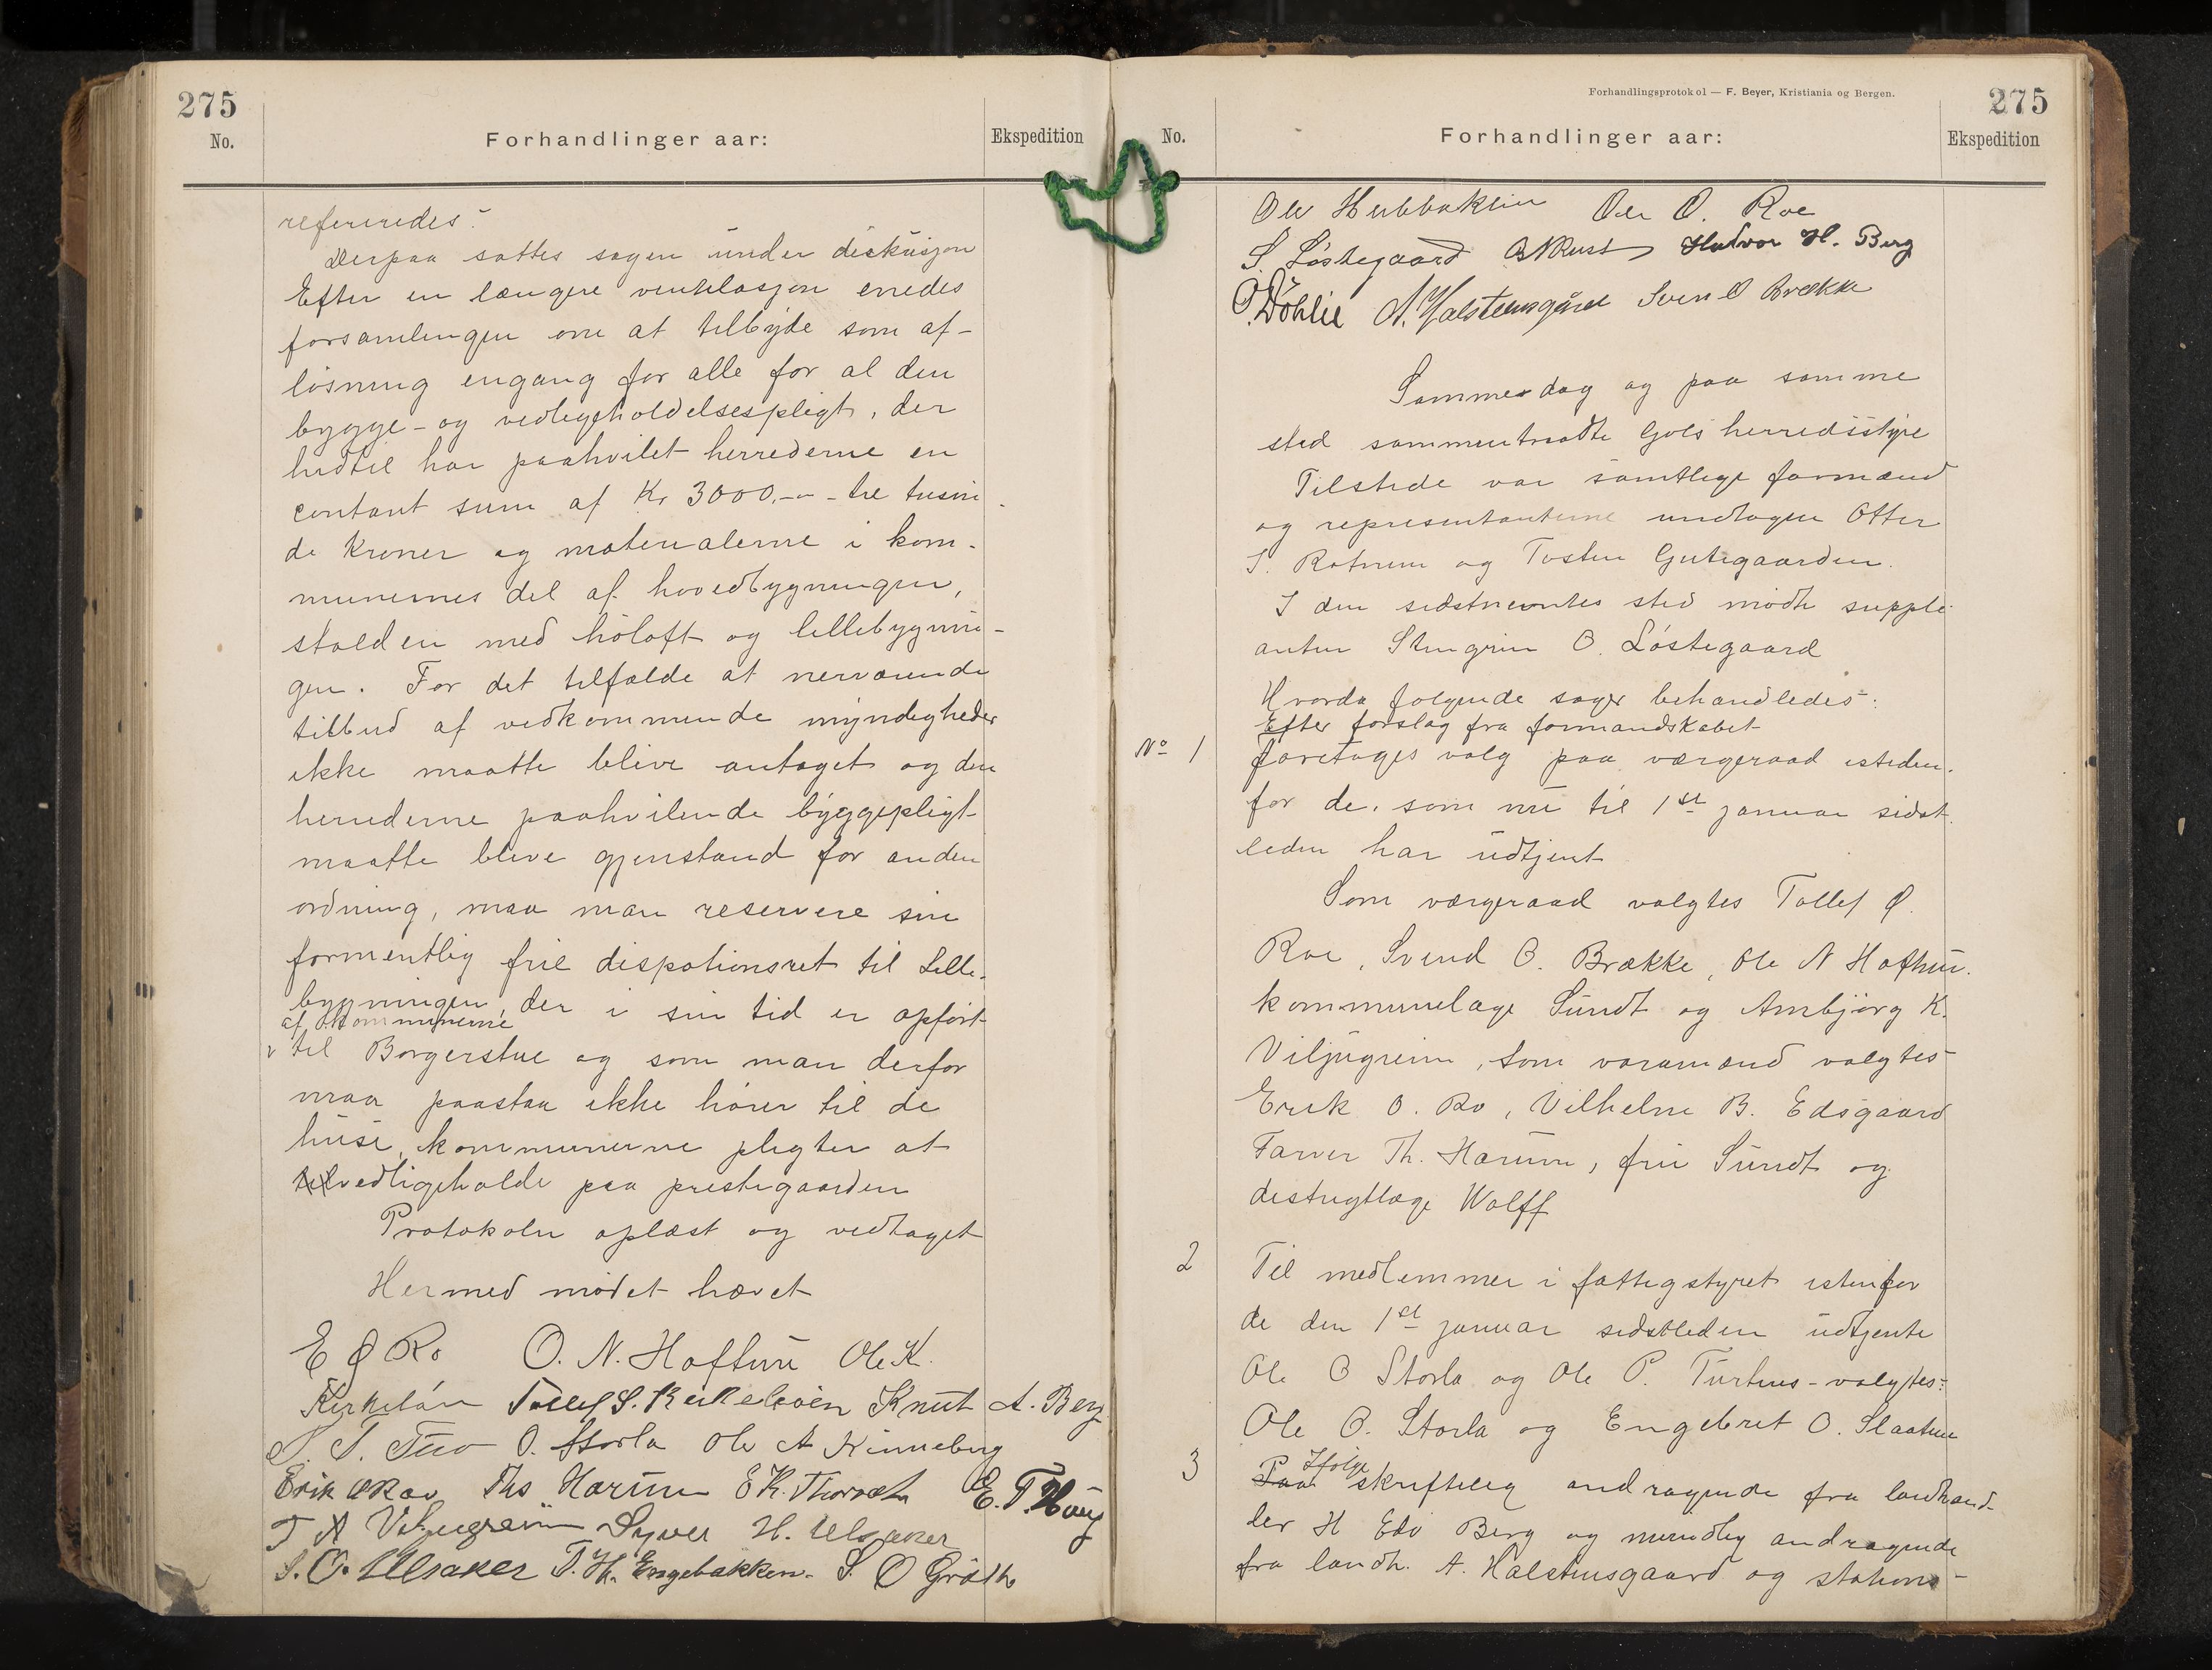 275
No.
Forhandlinger aar:
Ekspedition
refereredes:
Derpaa sattes sagen under diskusjon
Efter en længere ventelasjon enedes
forsamlingen om at tilbyde som af-
løsning engang for alle for al den
bygge- og vedligeholdelsespligt, der
hidtil har paahvilet herrederne en
contant sum af Kr 3000,-- - tre tusin
de kroner og materialerne i kom-
munernes del af hovedbygningen,
stalden med høloft og lillebygnin-
gen. For det tilfælde at nerværende
tilbud af vedkommende myndigheder
ikke maatte blive antaget og den
herrederne paahvilende byggepligt
maatte bleve gjenstand for anden
ordning, maa man reservere sin
formentlig frie dispotionsret til Lille-
bygningen, der i sin tid er opført
af kommunerne
v til Borgerstue og som man derfor
maa paastaa ikke hører til de
huse, kommunerne pligter at
vedligeholde paa prestegaarden
Protokolen oplæst og vedtaget
Hermed mødet hævet
E O Ro O. N. Hoftun Ole K.
Kirkeløen Tollef S. Kirkeløen Knut A. Berg
T. Tuv O. Storla Ole A Kinneberg
Erik O Roe Ths Harum E K. Thorset E. T. Haug
T A Viljugrein Syver H. Ulsaker
S. O. Ulsaker T. H. Engebakken. S. O Grøth
Forhandlingsprotokol — F. Beyer, Kristiania og Bergen.
275
No.
Forhandlinger aar:
Ekspedition
Ole Hubbaklien Ole O. Roe
S. Løstegaard Rust Halvor H. Berg
O. Døhlie A. Halstensgård Sven O Brække
Sammedag og paa samme
sted sammentraadte Gols herredsstyre
Tilstede var samtlige formænd
og representanterne undtagen Otter
S. Rotnem og Tosten Gutegaarden.
I den sidstnevntes sted mødte supple
anten Stengrim O. Løstegaard
Hvorda følgende sager behandledes:
Efter forslag fra formandskabet
No 1 foretages valg paa værgeraad isteden-
for de, som nu til 1st januar sidst
leden har udtjent
Som værgeraad valgtes Tollef O.
Roe, Svend O. Brække, Ole N Hoftun.
kommunelæge Sundt og Ambjørg K.
Viljugrein, Som varamænd valgtes
Erik O. Ro, Vilhelm B. Edsgaard
Farver Th. Harum, fru Sundt og
distrigtlæge Wolff
2 Til medlemmer i fattigstyret istenfor
de den 1st januar sidstleden udtjente
Ole O Storla og Ole P. Turhus - valgtes:
Ole O. Storla og Engebret O. Slaatun
3 Paa Ifølge skriftelig andragende fra landhand-
ler H Edv Berg og mundtlig andragende
fra landh. A. Halstensgaard og stations-